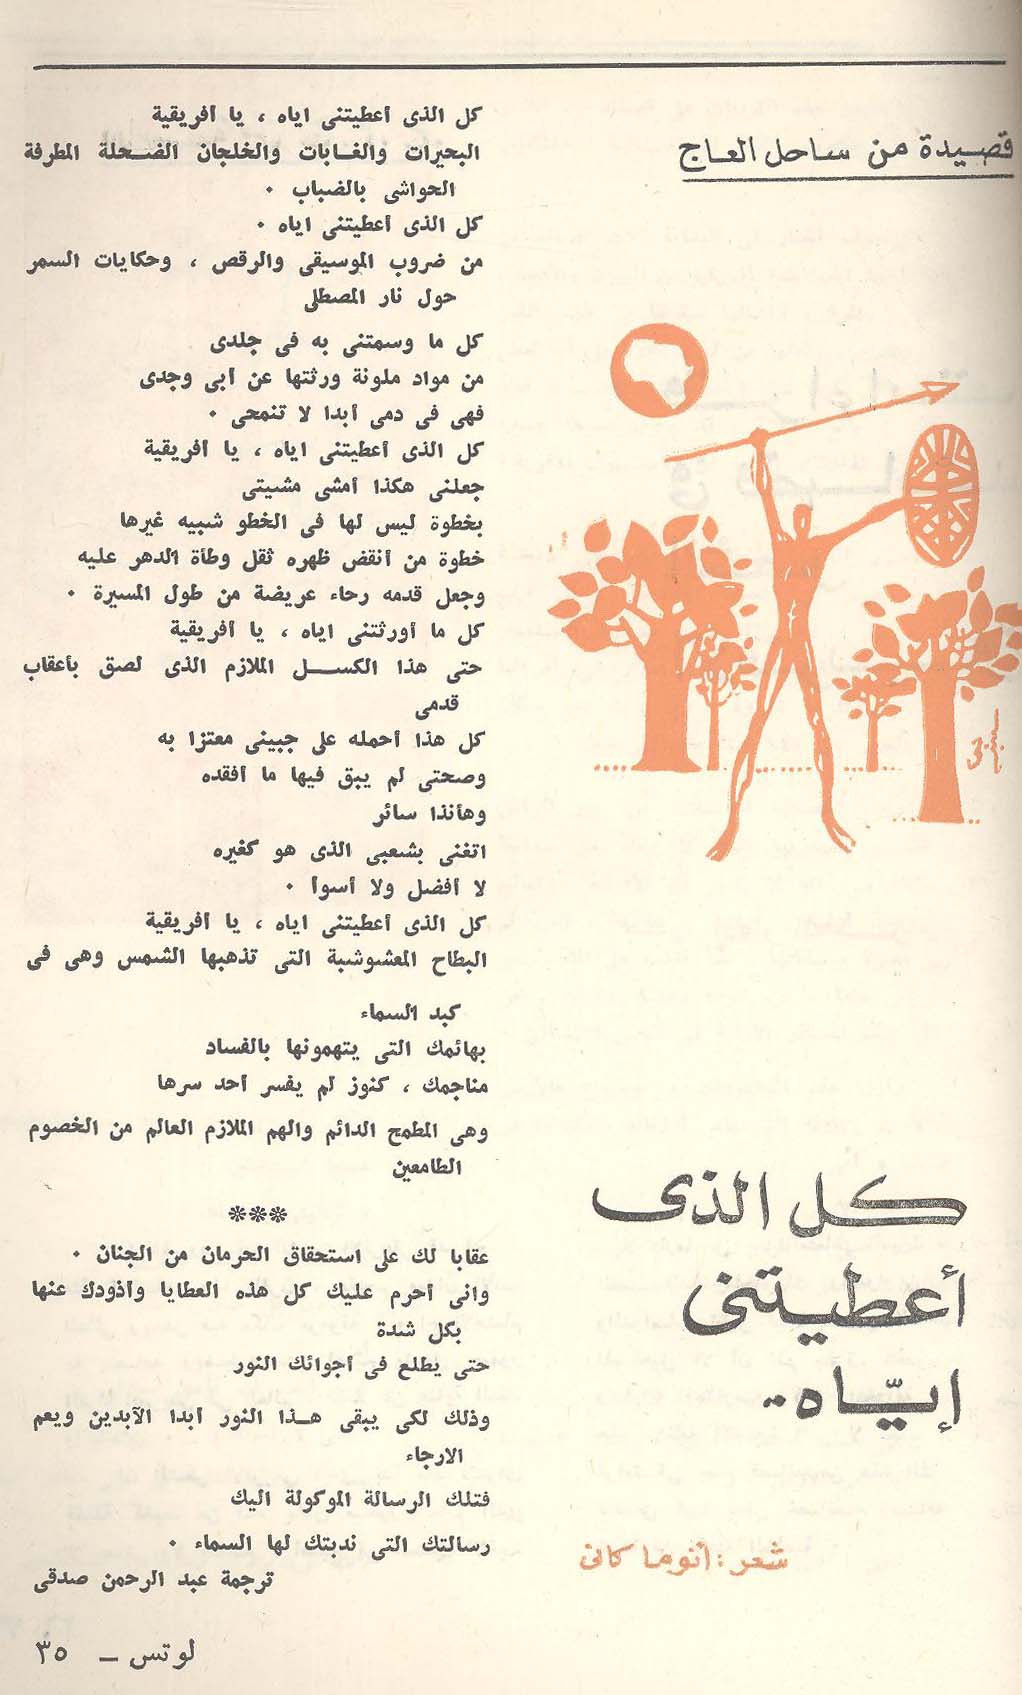 قصيدة من ساحل العاج
كل الذى
أعطيتنى
إيّاه ..
شعر : أنوما كانى
كل الذى أعطيتنى اياه ، يا أفريقية
البحيرات والغابات والخلجان الضحلة المطرفة
الحواشى بالضباب .
كل الذى أعطيتنى اياه .
من ضروب الموسيقى والرقص ، وحكايات السمر
حول نار المصطلى
كل ما وسمتنى به فى جلدى
من مواد ملونة ورثتها عن أبى وجدى
فهى فى دمى أبدا لا تنمحى .
كل الذى أعطيتنى اياه ، يا أفريقية
جعلنى هكذا أمشى مشيتى
بخطوة ليس لها فى الخطو شبيه غيرها
خطوة من أنقض ظهره ثقل وطأة الدهر عليه
وجعل قدمه رحاء عريضة من طول المسيرة .
كل ما أورثتنى اياه ، يا أفريقية
حتى هذا الكسل الملازم الذى لصق بأعقاب
قدمى
كل هذا أحمله على جبينى معتزا به
وصحتى لم يبق فيها ما أفقده
وهأنذا سائر
اتغنى بشعبى الذى هو كغيره
لا أفضل ولا أسوأ .
كل الذى أعطيتنى اياه ، يا أفريقية
البطاح المعشوشبة التى تذهبها الشمس وهى فى
كبد السماء
بهائمك التى يتهمونها بالفساد
مناجمك ، كنوز لم يفسر أحد سرها
وهى المطمح الدائم والهم الملازم العالم من الخصوم
الطامعين
***
عقابا لك على استحقاق الحرمان من الجنان .
وانى أحرم عليك كل هذه العطايا وأذودك عنها
بكل شدة
حتى يطلع فى أجوائك النور
وذلك لكى يبقى هذا النور أبدا الآبدين ويعم
الارجاء
فتلك الرسالة الموكولة اليك
رسالتك التى ندبتك لها السماء .
ترجمة عبد الرحمن صدقى
لوتس – ٣٥